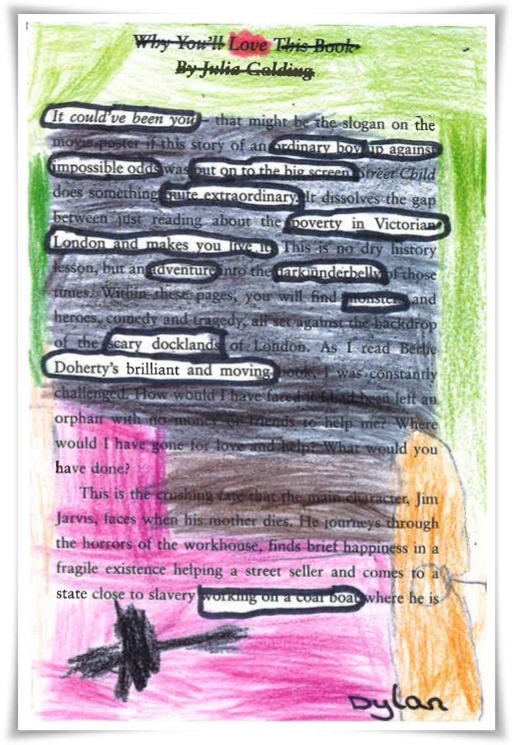 Why You'll Love This Book
By Julia Golding
It could've been you – that might be the slogan on the
movie poster if this story of an ordinary boy up against
impossible odds was put on to the big screen. Street Child
does something quite extraordinary. It dissolves the gap
between just reading about the poverty in Victorian
London and makes you live it. This is no dry history
lesson, but an adventure into the dark underbelly of those
times. Within these pages, you will find monsters and
heroes, comedy and tragedy, all set against the backdrop
of the scary docklands of London. As I read Berlie
Doherty's brilliant and moving book, I was constantly
challenged. How would I have fared if I had been left an
orphan with no money or friends to help me? Where
would I have gone for love and help? What would you
have done?
This is the crushing fate that the main character, Jim
Jarvis, faces when his mother dies. He journeys through
the horrors of the workhouse, finds brief happiness in a
fragile existence helping a street seller and comes to a
state close to slavery working on a coal boat where he is
Dylan